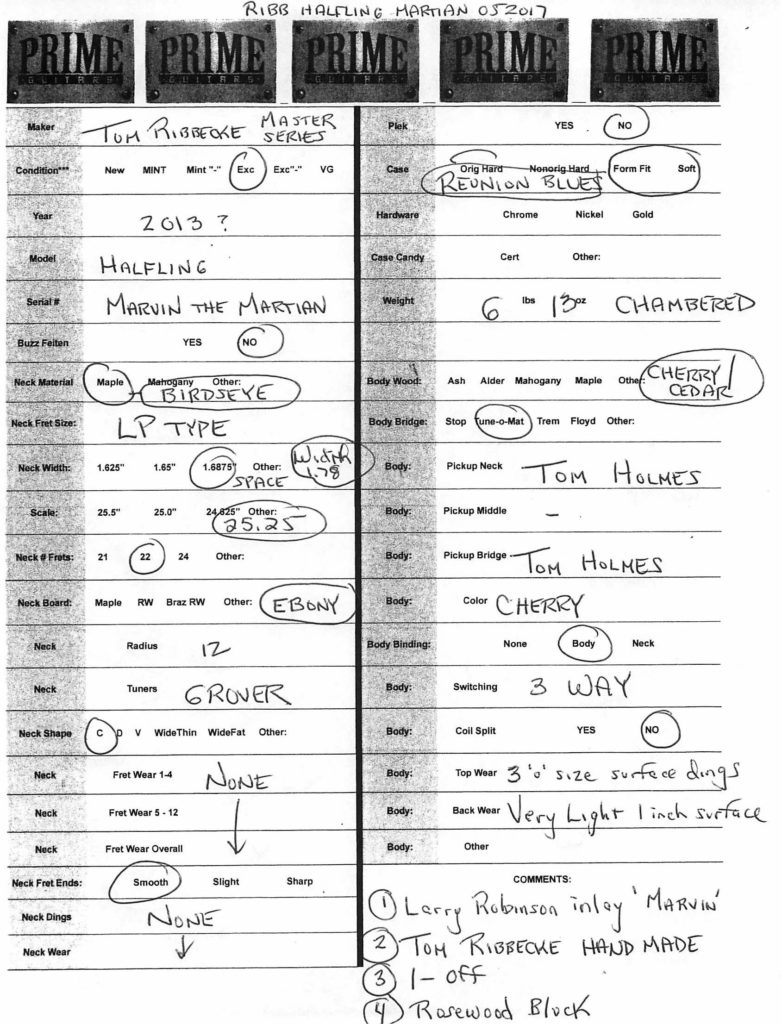 RIBB HALFLING MARTIAN 052017
PRIME GUITARS PRIME GUITARS PRIME GUITARS PRIME GUITARS PRIME GUITARS
Maker TOM RIBBECKE MASTER SERIES
Condition*** New MINT Mint "-" Exc Exc"-" VG
Year 2013 ?
Model HALFLING
Serial # MARVIN THE MARTIAN
Buzz Feiten YES NO
Neck Material Maple Mahogany Other:
BIRDSEYE
Neck Fret Size: LP TYPE
Neck Width: 1.625" 1.65" 1.6875" Other: WIDTH 1.78
SPACE
Scale: 25.5" 25.0" 24.625" Other:
25.25
Neck # Frets: 21 22 24 Other:
Neck Board: Maple RW Braz RW Other: EBONY
Neck Radius 12
Neck Tuners GROVER
Neck Shape C D V WideThin WideFat Other:
Neck Fret Wear 1-4 NONE
Neck Fret Wear 5 - 12
Neck Fret Wear Overall
Neck Fret Ends: Smooth Slight Sharp
Neck Dings NONE
Neck Wear
Plek YES NO
Case Orig Hard Nonorig Hard Form Fit Soft
REUNION BLUES
Hardware Chrome Nickel Gold
Case Candy Cert Other:
Weight 6 lbs 13 oz CHAMBERED
Body Wood: Ash Alder Mahogany Maple Other: CHERRY/
CEDAR
Body Bridge: Stop Tune-o-Mat Trem Floyd Other:
Body: Pickup Neck TOM HOLMES
Body: Pickup Middle -
Body: Pickup Bridge TOM HOLMES
Body: Color CHERRY
Body Binding: None Body Neck
Body: Switching 3 WAY
Body: Coil Split YES NO
Body: Top Wear 3 'o' size surface dings
Body: Back Wear Very Light 1 inch surface
Body: Other
COMMENTS:
1 Larry Robinson inlay 'MARVIN'
2 TOM RIBBECKE HAND MADE
3 1-off
4 Rosewood Block